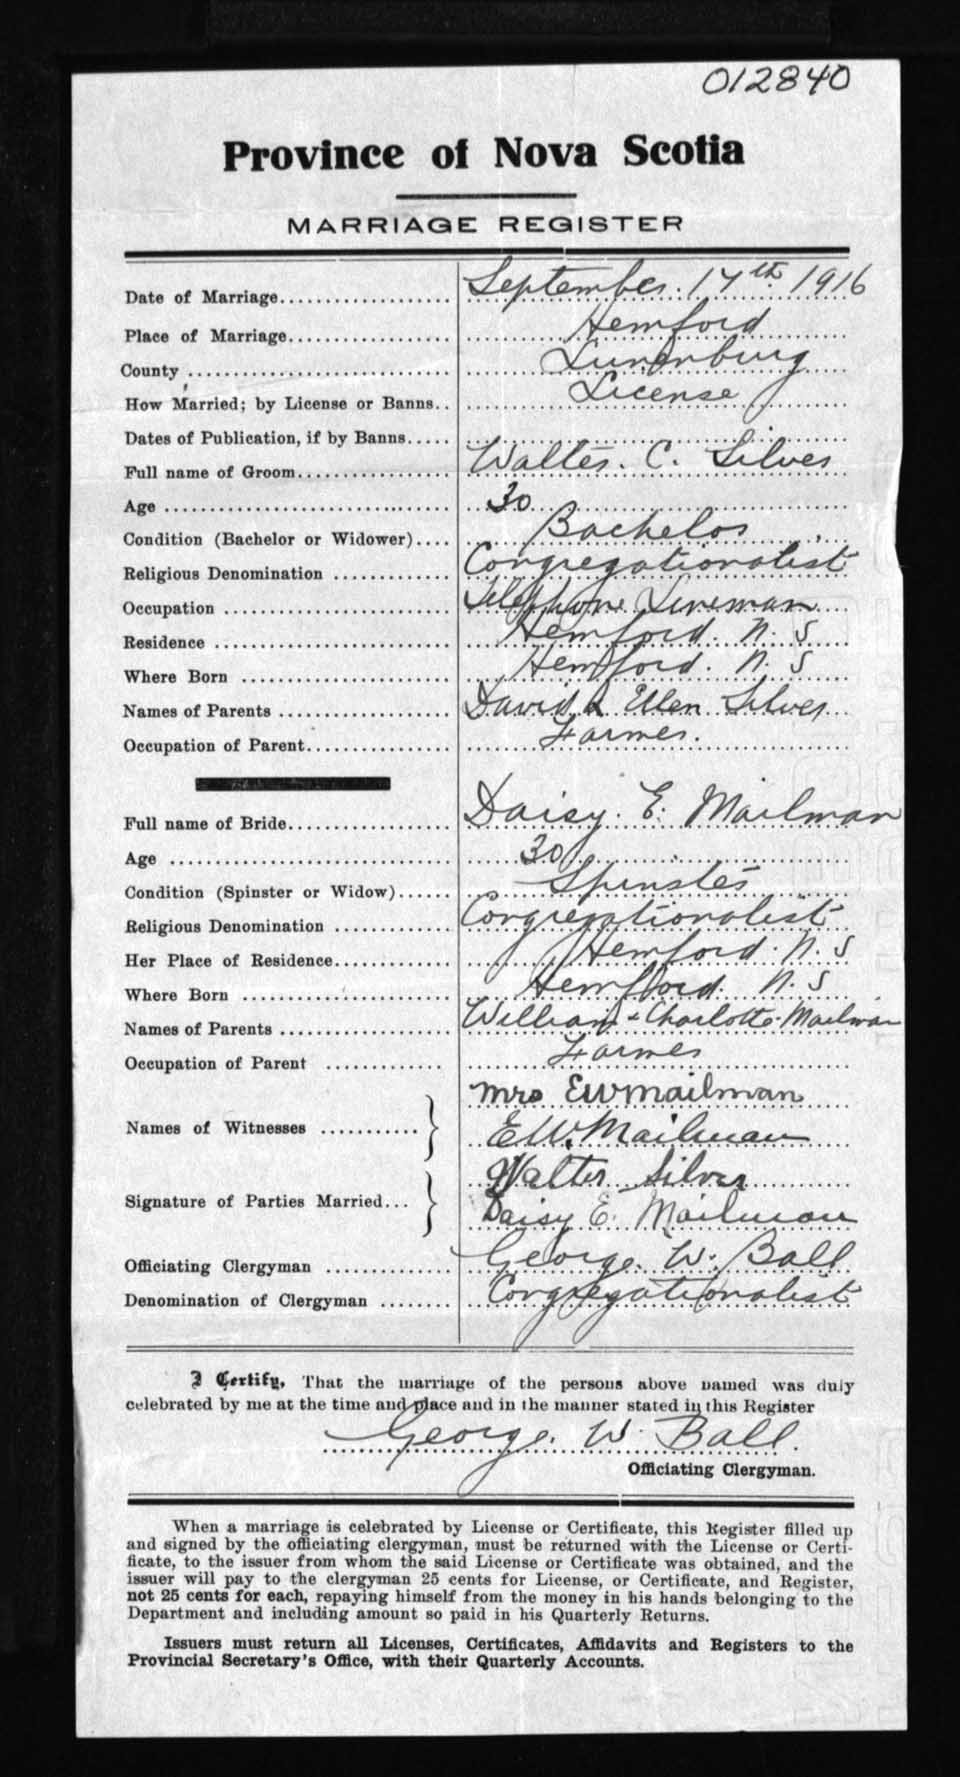 012840
Province of Nova Scotia
MARRIAGE REGISTER
Date of Marriage.................. September. 17th 1916
Place of Marriage.................. Hemford
County .................. Lunenburg
How Married; by License or Banns.. License
Dates of Publication, if by Banns.....
Full name of Groom.................. Walter. C. Silver
Age .................. 30
Condition (Bachelor or Widower).... Bachelor
Religious Denomination ............. Congregationalist
Occupation .................. Telephone Lineman
Residence .................. Hemford. N. S
Where Born .................. Hemford. N. S
Names of Parents .................. David & Ellen Silver
Occupation of Parent.................. Farmer.
Full name of Bride.................. Daisy. E. Mailman
Age .................. 30
Condition (Spinster or Widow)...... Spinster
Religious Denomination ............. Congregationalist
Her Place of Residence............. Hemford. N. S
Where Born .................. Hemford. N. S
Names of Parents .................. William + Charlotte Mailman
Occupation of Parent ............. Farmer
Mrs E W Mailman
Names of Witnesses ...........
E.W. Mailman
Walter Silver
Signature of Parties Married...
Daisy E. Mailman
Officiating Clergyman ............. George. W. Ball
Denomination of Clergyman ........ Congregationalist
I Certify, That the marriage of the persons above named was duly
celebrated by me at the time and place and in the manner stated in this Register
George. W. Ball.
Officiating Clergyman.
When a marriage is celebrated by License or Certificate, this Register filled up
and signed by the officiating clergyman, must be returned with the License or Certi-
ficate, to the issuer from whom the said License or Certificate was obtained, and the
issuer will pay to the clergyman 25 cents for License, or Certificate, and Register,
not 25 cents for each, repaying himself from the money in his hands belonging to the
Department and including amount so paid in his Quarterly Returns.
Issuers must return all Licenses, Certificates, Affidavits and Registers to the
Provincial Secretary's Office, with their Quarterly Accounts.